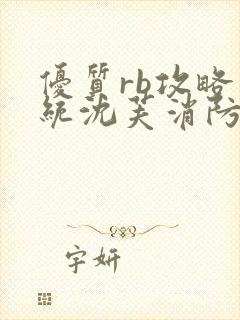 優質rb攻略
統沈芙消防
字妍